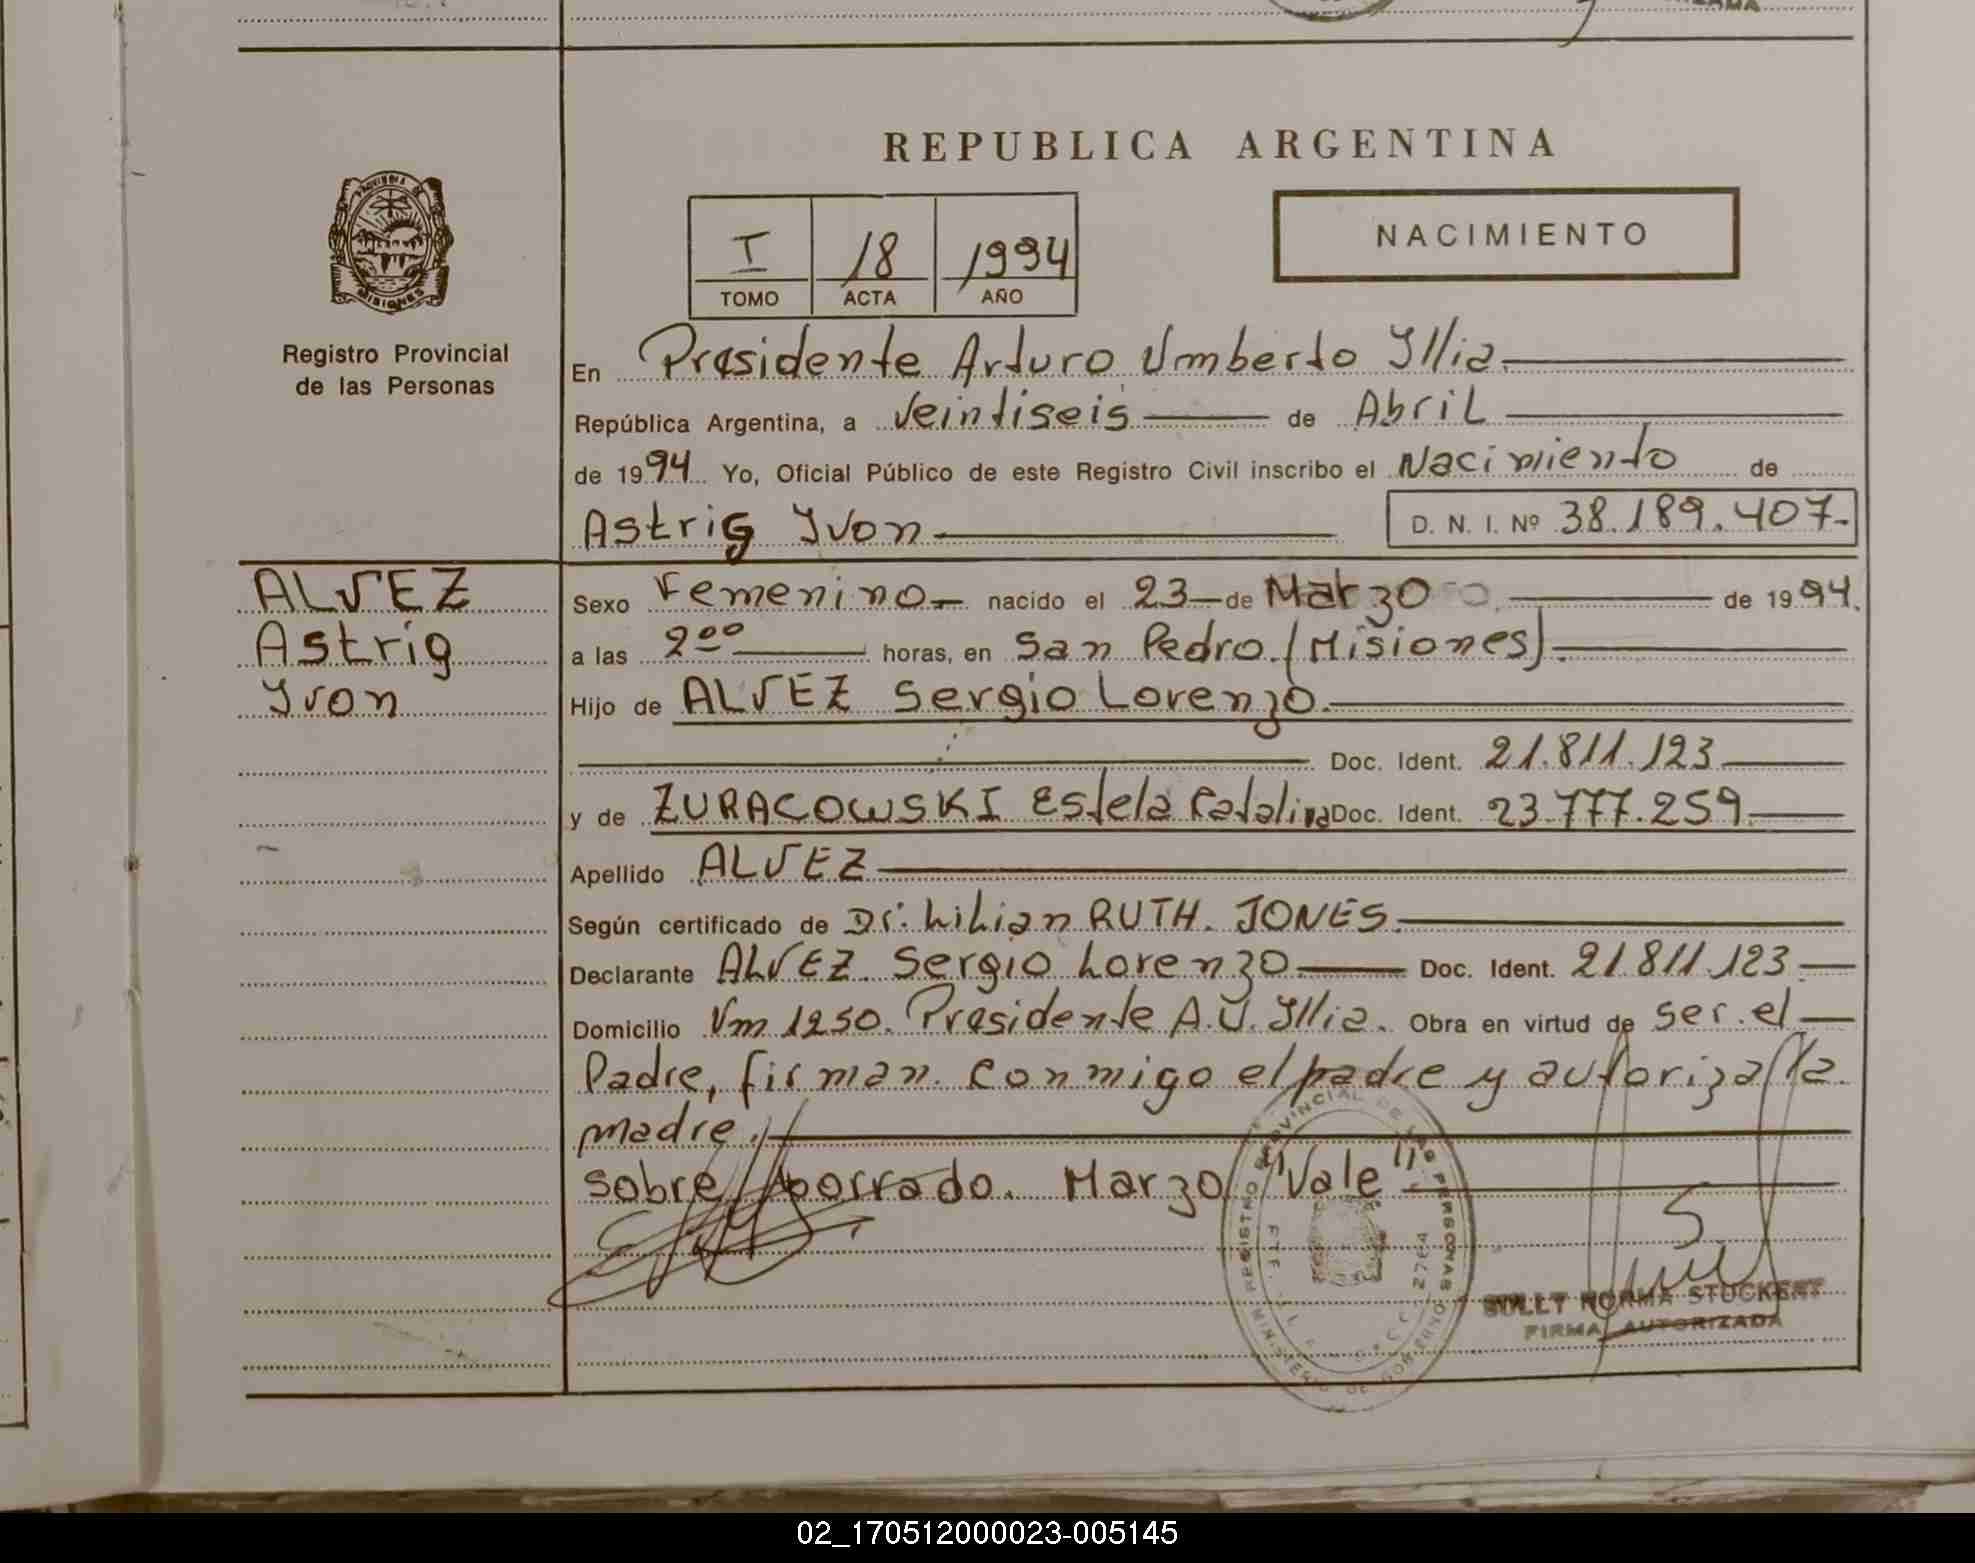 REPUBLICA ARGENTINA
I 18 1994
TOMO ACTA AÑO
NACIMIENTO
PROVINCIA DE MISIONES
Registro Provincial
de las Personas
En Presidente Arturo Umberto Yllia.
República Argentina, a veintiseis de Abril
de 1994 Yo, Oficial Público de este Registro Civil inscribo el Nacimiento de
Astrig Yvon D. N. I. Nº 38.189.407.
ALVEZ
Astrig
Yvon
Sexo Femenino nacido el 23 de Marzo de 1994.
a las 2ºº horas, en San Pedro. (Misiones).
Hijo de ALVEZ Sergio Lorenzo.
Doc. Ident. 21.811.123
y de ZURACOWSKI Estela Catalina Doc. Ident. 23.777.259.
Apellido ALVEZ
Según certificado de Dr. Lilian RUTH. JONES.
Declarante ALVEZ Sergio Lorenzo Doc. Ident. 21811.123
Domicilio Vm 1250. Presidente A.U. Yllia. Obra en virtud de ser el
Padre, firman conmigo el padre y autoriza la
madre.
Sobre borrado. Marzo "Vale"
REGISTRO PROVINCIAL DE LAS PERSONAS
MINISTERIO DE GOBIERNO
2764
SULLY NORMA STOCKERT
FIRMA AUTORIZADA
02_170512000023-005145